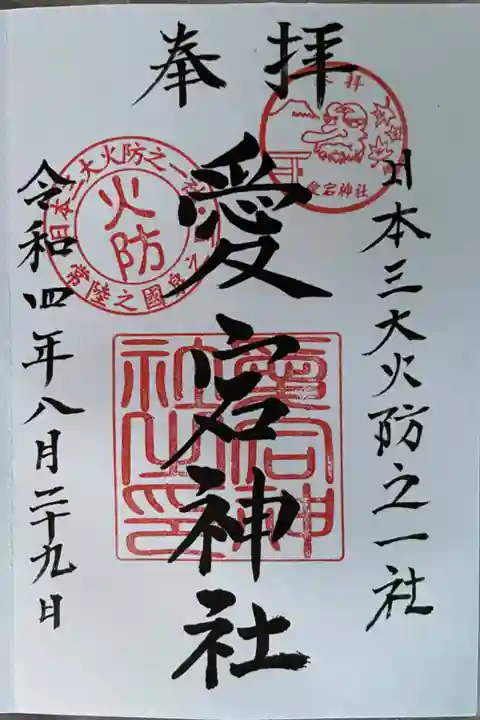 奉拝
日本三大火防之一社
愛宕神社
令和四年八月二十九日
奉拝
愛宕神社
日本三大火防之一社
火防
常陸之國
愛宕神社之印